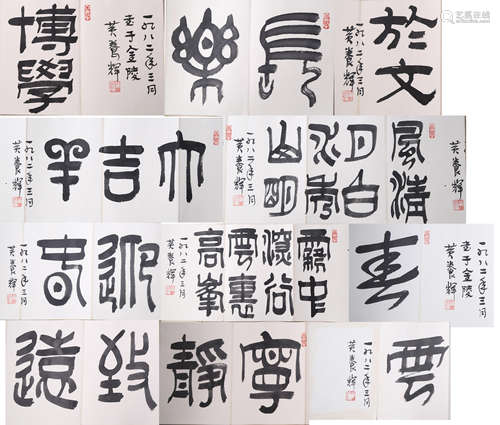 博學
一九八二年三月
書于金陵
黄養輝
長樂
於文
一九八二年三月
書于金陵
黄養輝
大吉羊
一九八二年三月
黄養輝
風清
月白
水秀
山明
一九八二年三月
黄養輝
迎春
一九八二年三月
黄養輝
霧中
深谷
雲裏
高峯
一九八二年三月
黄養輝
一九八二年三月
書于金陵
黄養輝
寧靜致遠
雲
一九八二年三月
黄養輝